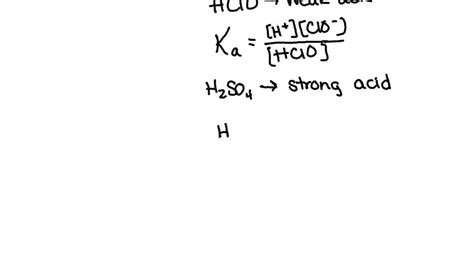 HClO → weak acid
Ka = [H⁺][ClO⁻] / [HClO]
H₂SO₄ → strong acid
H